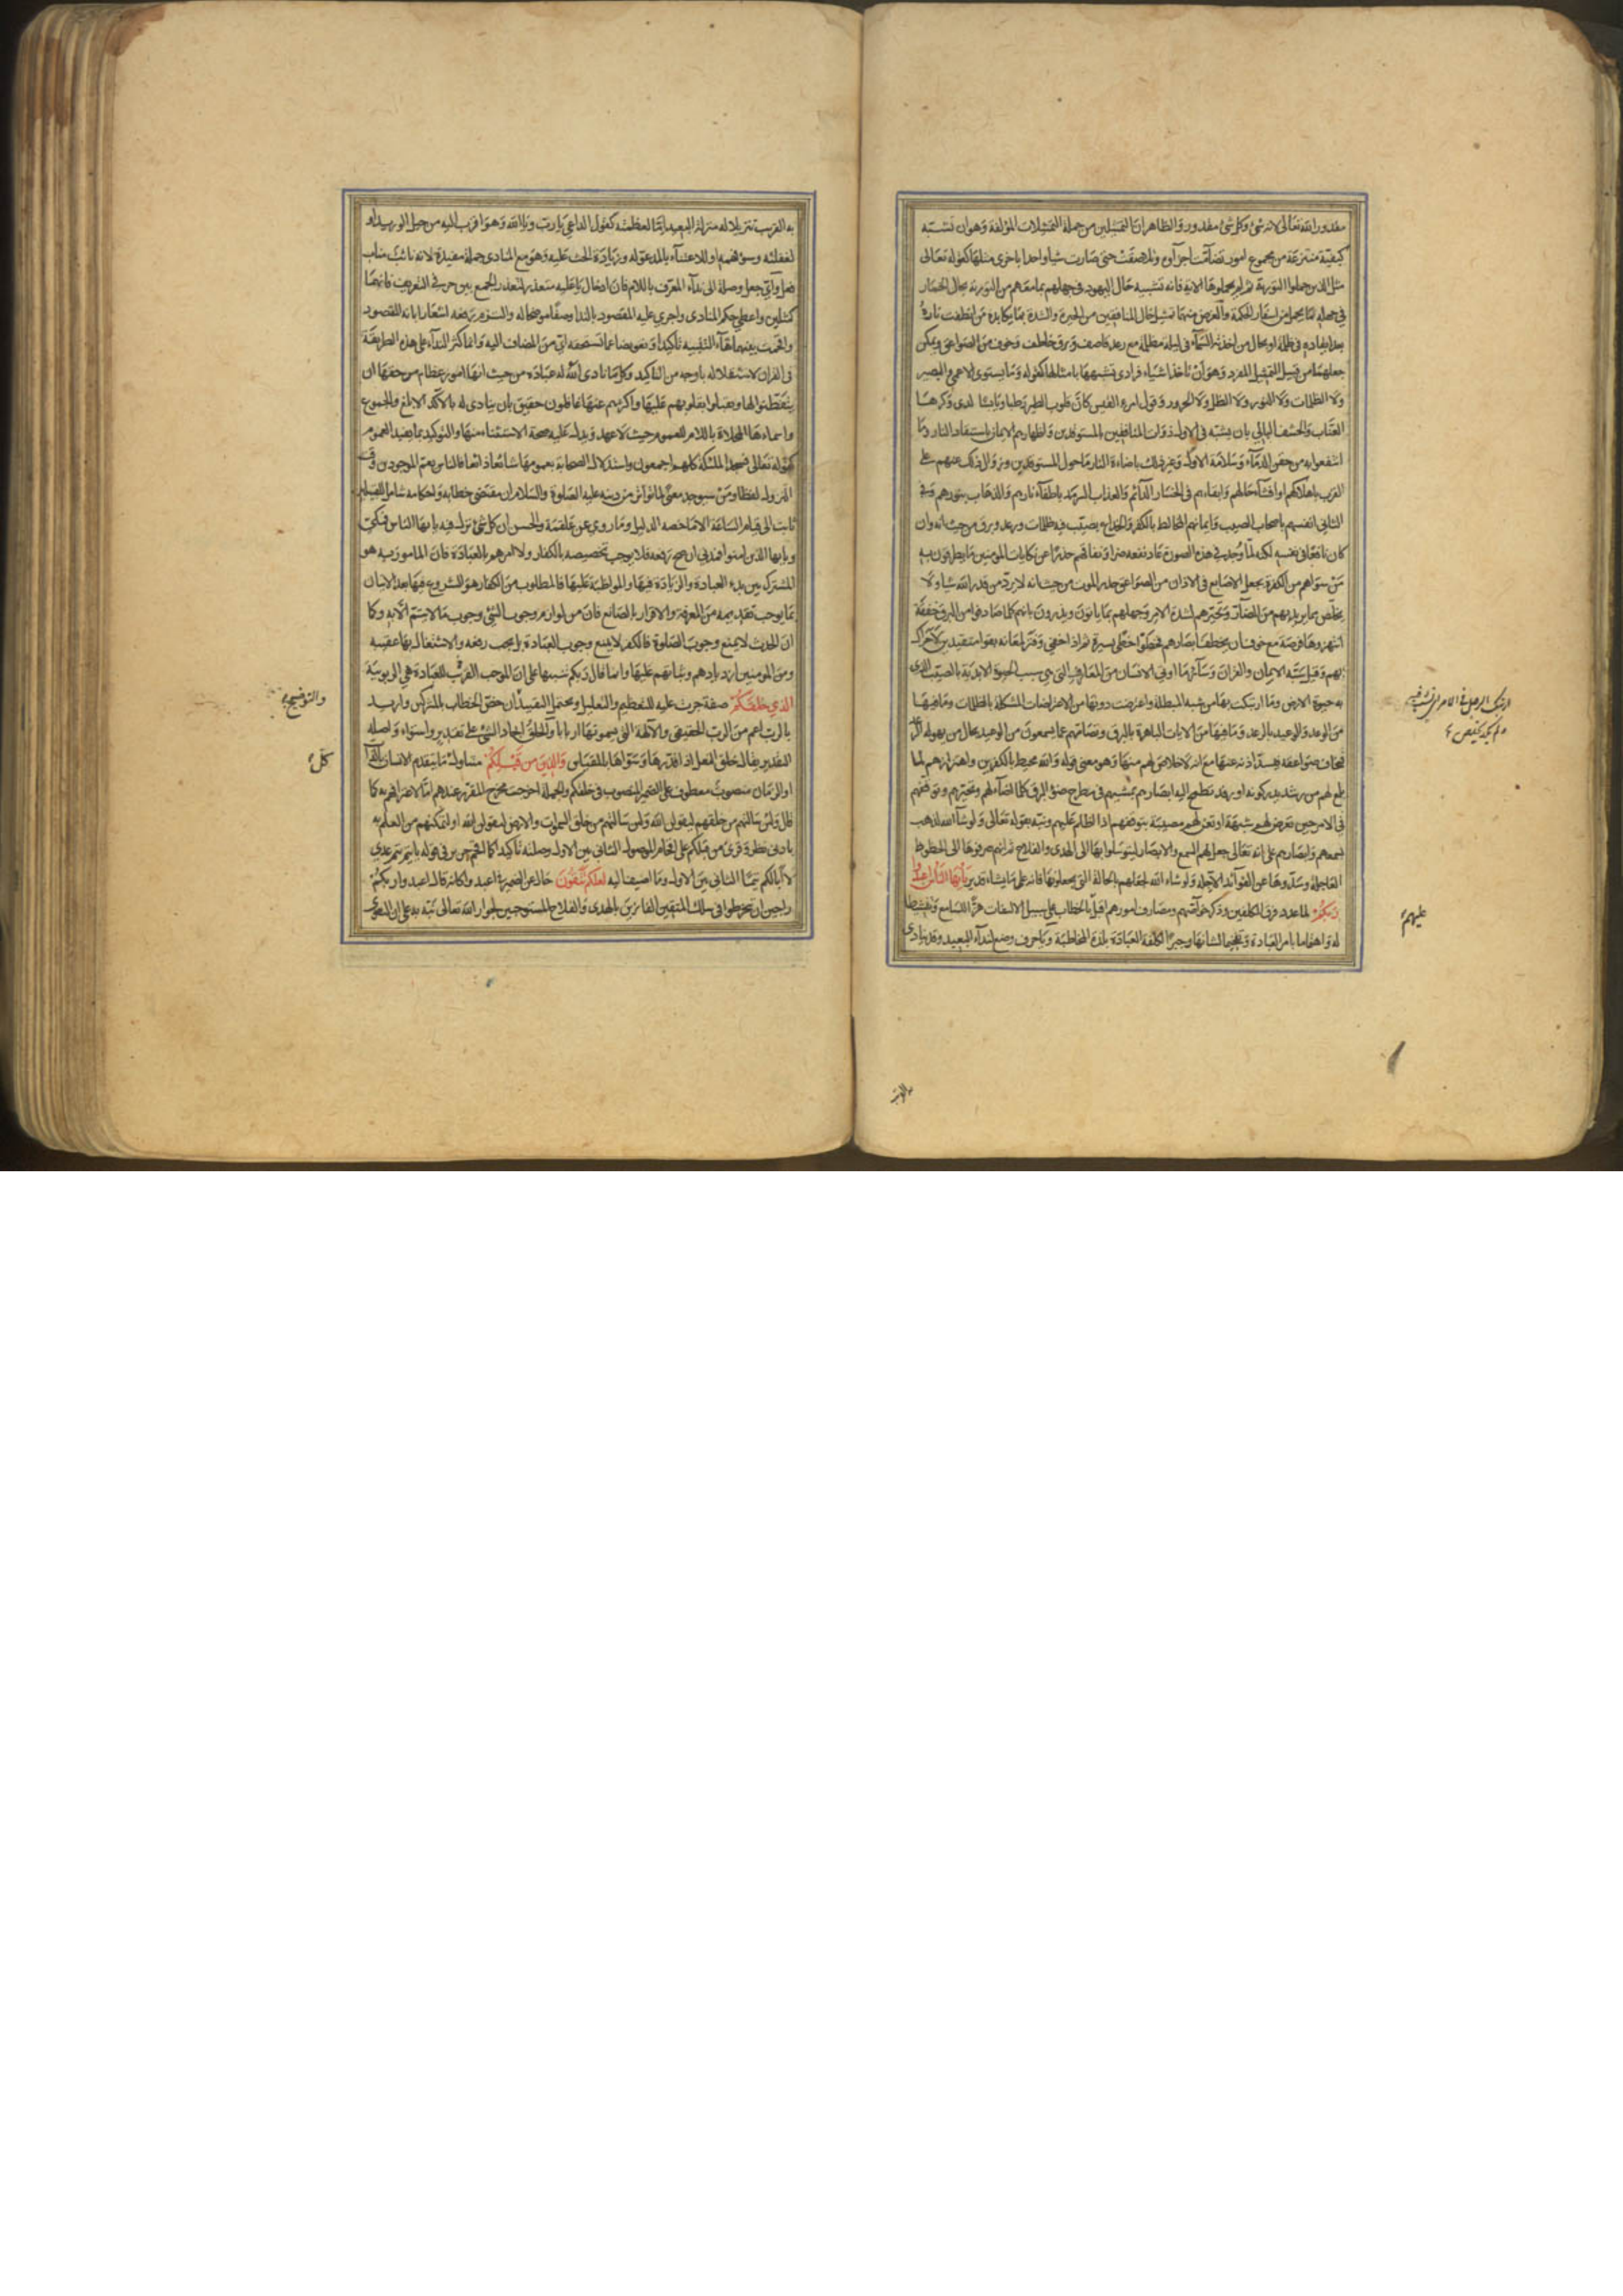 مقدور الله تعالى لانه شئ وكل شئ مقدور والظاهر ان التمثيلين من جملة التمثيلات المؤلفة وهو ان تشبه
كيفية منتزعة من مجموع امور تضامت اجزاؤه وتلاصقت حتى صارت شيا واحدا باخرى مثلها كقوله تعالى
مثل الذين حملوا التورية ثم لم يحملوها الاية فانه تشبيه حال اليهود في جهلهم بما معهم من التورية بحال الحمار
في جهله بما يحمل من اسفار الحكمة والغرض منهما تمثيل حال المنافقين من الحيرة والشدة بما يكابده من انطفت ناره
بعد ايقادها في ظلمة او بحال من اخذته السماء في ليلة مظلمة مع رعد قاصف وبرق خاطف وخوف من الصواعق ويمكن
جعلهما من قبيل التمثيل المفرد وهو ان تاخذ اشياء فرادى فتشبهها بامثالها كقوله وما يستوى الاعمى والبصير
ولا الظلمات ولا النور ولا الظل ولا الحرور وقول امرء القيس كان قلوب الطير رطبا ويابسا لدى وكرها
العناب والحشف البالي بان يشبه في الاول ذوات المنافقين بالمستوقدين واظهارهم الايمان باستيقاد النار وما
انتفعوا به من حقن الدماء وسلامة الاولاد وغير ذلك باضاءة النار ما حول المستوقدين وزوال ذلك عنهم على
القرب باهلاكهم او افشاء حالهم وابقاءهم في الخسار الدائم والعذاب السرمد باطفاء نارهم والذهاب بنورهم وفي
الثاني انفسهم باصحاب الصيب وايمانهم المخالط بالكفر والخداع بصيب فيه ظلمات ورعد وبرق من حيث انه وان
كان نافعا في نفسه لكنه لما وجد في هذه الصورة عاد نفعه ضرا ونفاقهم حذرا عن نكايات المؤمنين وما يطرقون به
من سواهم من الكفرة بجعل الاصابع في الاذان من الصواعق حذر الموت من حيث انه لا يرد من قدر الله شيا ولا
يخلص مما يريد بهم من المضار وتحيرهم لشدة الامر وجهلهم بما ياتون ويذرون بانهم كلما صادفوا من البرق خفقة
انتهزوها فرصة مع خوف ان يخطف ابصارهم فخطوا خطى يسيرة ثم اذا خفي وفتر لمعانه بقوا متقيدين لا حراك
بهم وقيل شبه الايمان والقران وسائر ما اوتي الانسان من المعارف التي هي سبب الحيوة الابدية بالصيب الذي
به حيوة الارض وما ارتبكت بها من شبه المبطلة واعترضت دونها من الاعتراضات المشكلة بالظلمات وما فيها
من الوعد والوعيد بالرعد وما فيها من الايات الباهرة بالبرق وتصامهم عما يسمعون من الوعيد بحال من يهوله الرعد
فيخاف صواعقه فيسد اذنه عنها مع انه لا خلاص لهم منها وهو معنى قوله والله محيط بالكفرين واهتزازهم لما
يلمع لهم من رشد يدركونه او رفد تطمح اليه ابصارهم بمشيهم في مطرح ضوء البرق كلما اضاء لهم وتحيرهم وتوقفهم
في الامر حين تعرض لهم شبهة او تعن لهم مصيبة بتوقفهم اذا اظلم عليهم ونبه بقوله تعالى ولو شاء الله لذهب
بسمعهم وابصارهم على انه تعالى جعل لهم السمع والابصار ليتوسلوا بها الى الهدى والفلاح ثم انهم صرفوها الى الحظوظ
العاجلة وسدوها عن الفوائد الاجلة ولو شاء الله لجعلهم بالحالة التي يجعلونها فانه على ما يشاء قدير يا ايها الناس اعبدوا
ربكم لما عدد فرق المكلفين وذكر خواصهم ومصارف امورهم اقبل بالخطاب على سبيل الالتفات هزا للسامع وتنشيطا
له واهتماما بامر العبادة وتفخيما لشانها وجبرا لكلفة العبادة بلذة المخاطبة ويا حرف وضع لنداء البعيد وقد ينادى
عليهم
به القريب
به القريب تنزيلا له منزلة البعيد اما لعظمته كقول الداعي يا رب ويا الله وهو اقرب اليه من حبل الوريد او
لغفلته وسوء فهمه او للاعتناء بالمدعو له وزيادة الحث عليه وهو مع المنادى جملة مفيدة لانه نائب مناب
فعل واي جعل وصلة الى نداء المعرف باللام فان ادخال يا عليه متعذر لتعذر الجمع بين حرفي التعريف فانهما
كمثلين واعطي حكم المنادى واجري عليه المقصود بالنداء وصفا موضحا له والتزم رفعه اشعارا بانه المقصود
واقحمت بينهما هاء التنبيه تاكيدا وتعويضا عما تستحقه اي من المضاف اليه وانما كثر النداء على هذه الطريقة
في القران لاستقلاله باوجه من التاكيد وكل ما نادى الله له عباده من حيث انها امور عظام من حقها ان
يتفطنوا لها ويقبلوا بقلوبهم عليها واكثرهم عنها غافلون حقيق بان ينادى له بالآكد الابلغ والجموع
واسماءها المحلاة باللام للعموم حيث لا عهد ويدل عليه صحة الاستثناء منها والتوكيد بما يفيد العموم
كقوله تعالى فسجد الملئكة كلهم اجمعون واستدلال الصحابة بعمومها شائعا ذائعا فالناس يعم الموجودين وقت
النزول لفظا ومن سيوجد معنى لما تواتر من دينه عليه الصلوة والسلام ان مقتضى خطابه واحكامه شامل للقبيلين
ثابت الى قيام الساعة الا ما خصه الدليل وما روي عن علقمة والحسن ان كل شئ نزل فيه يا ايها الناس فمكي
ويا ايها الذين امنوا فمدني ان صح رفعه فلا يوجب تخصيصه بالكفار ولا امرهم بالعبادة فان المامور به هو
المشترك بين بدء العبادة والزيادة فيها والمواظبة عليها فالمطلوب من الكفار هو الشروع فيها بعد الاتيان
بما يوجب تقديمه من المعرفة والاقرار بالصانع فان من لوازم وجوب الشئ وجوب ما لا يتم الا به وكما
ان الحدث لا يمنع وجوب الصلوة فالكفر لا يمنع وجوب العبادة بل يجب رفعه والاشتغال بها عقيبه
ومن المومنين ازديادهم وثباتهم عليها وانما قال ربكم تنبيها على ان الموجب القريب للعبادة هي الربوبية
الذي خلقكم صفة جرت عليه للتعظيم والتعليل ويحتمل التقييد ان خص الخطاب بالمشركين واريد
والتوضيح
بالرب اعم من الرب الحقيقي والآلهة التي يسمونها اربابا والخلق ايجاد الشئ على تقدير واستواء واصله
التقدير يقال خلق النعل اذا قدرها وسواها بالمقياس والذين من قبلكم متناول ما يتقدم الانسان بالذات
كل
او الزمان منصوب معطوف على الضمير المنصوب في خلقكم والجملة اخرجت مخرج المقرر عندهم اما لاعترافهم به كما
قال ولئن سالتهم من خلقهم ليقولن الله ولئن سالتهم من خلق السموات والارض ليقولن الله او لتمكنهم من العلم به
بادنى نظر وقرئ من قبلكم على اقحام الموصول الثاني بين الاول وصلته تاكيدا كما اقحم جرير في قوله يا تيم تيم عدي
لا ابا لكم تيما الثاني بين الاول وما اضيف اليه لعلكم تتقون حال عن الضمير في اعبدوا كانه قال اعبدوا ربكم
راجين ان تنخرطوا في سلك المتقين الفائزين بالهدى والفلاح المستوجبين لجوار الله تعالى نبه به على ان التقوى